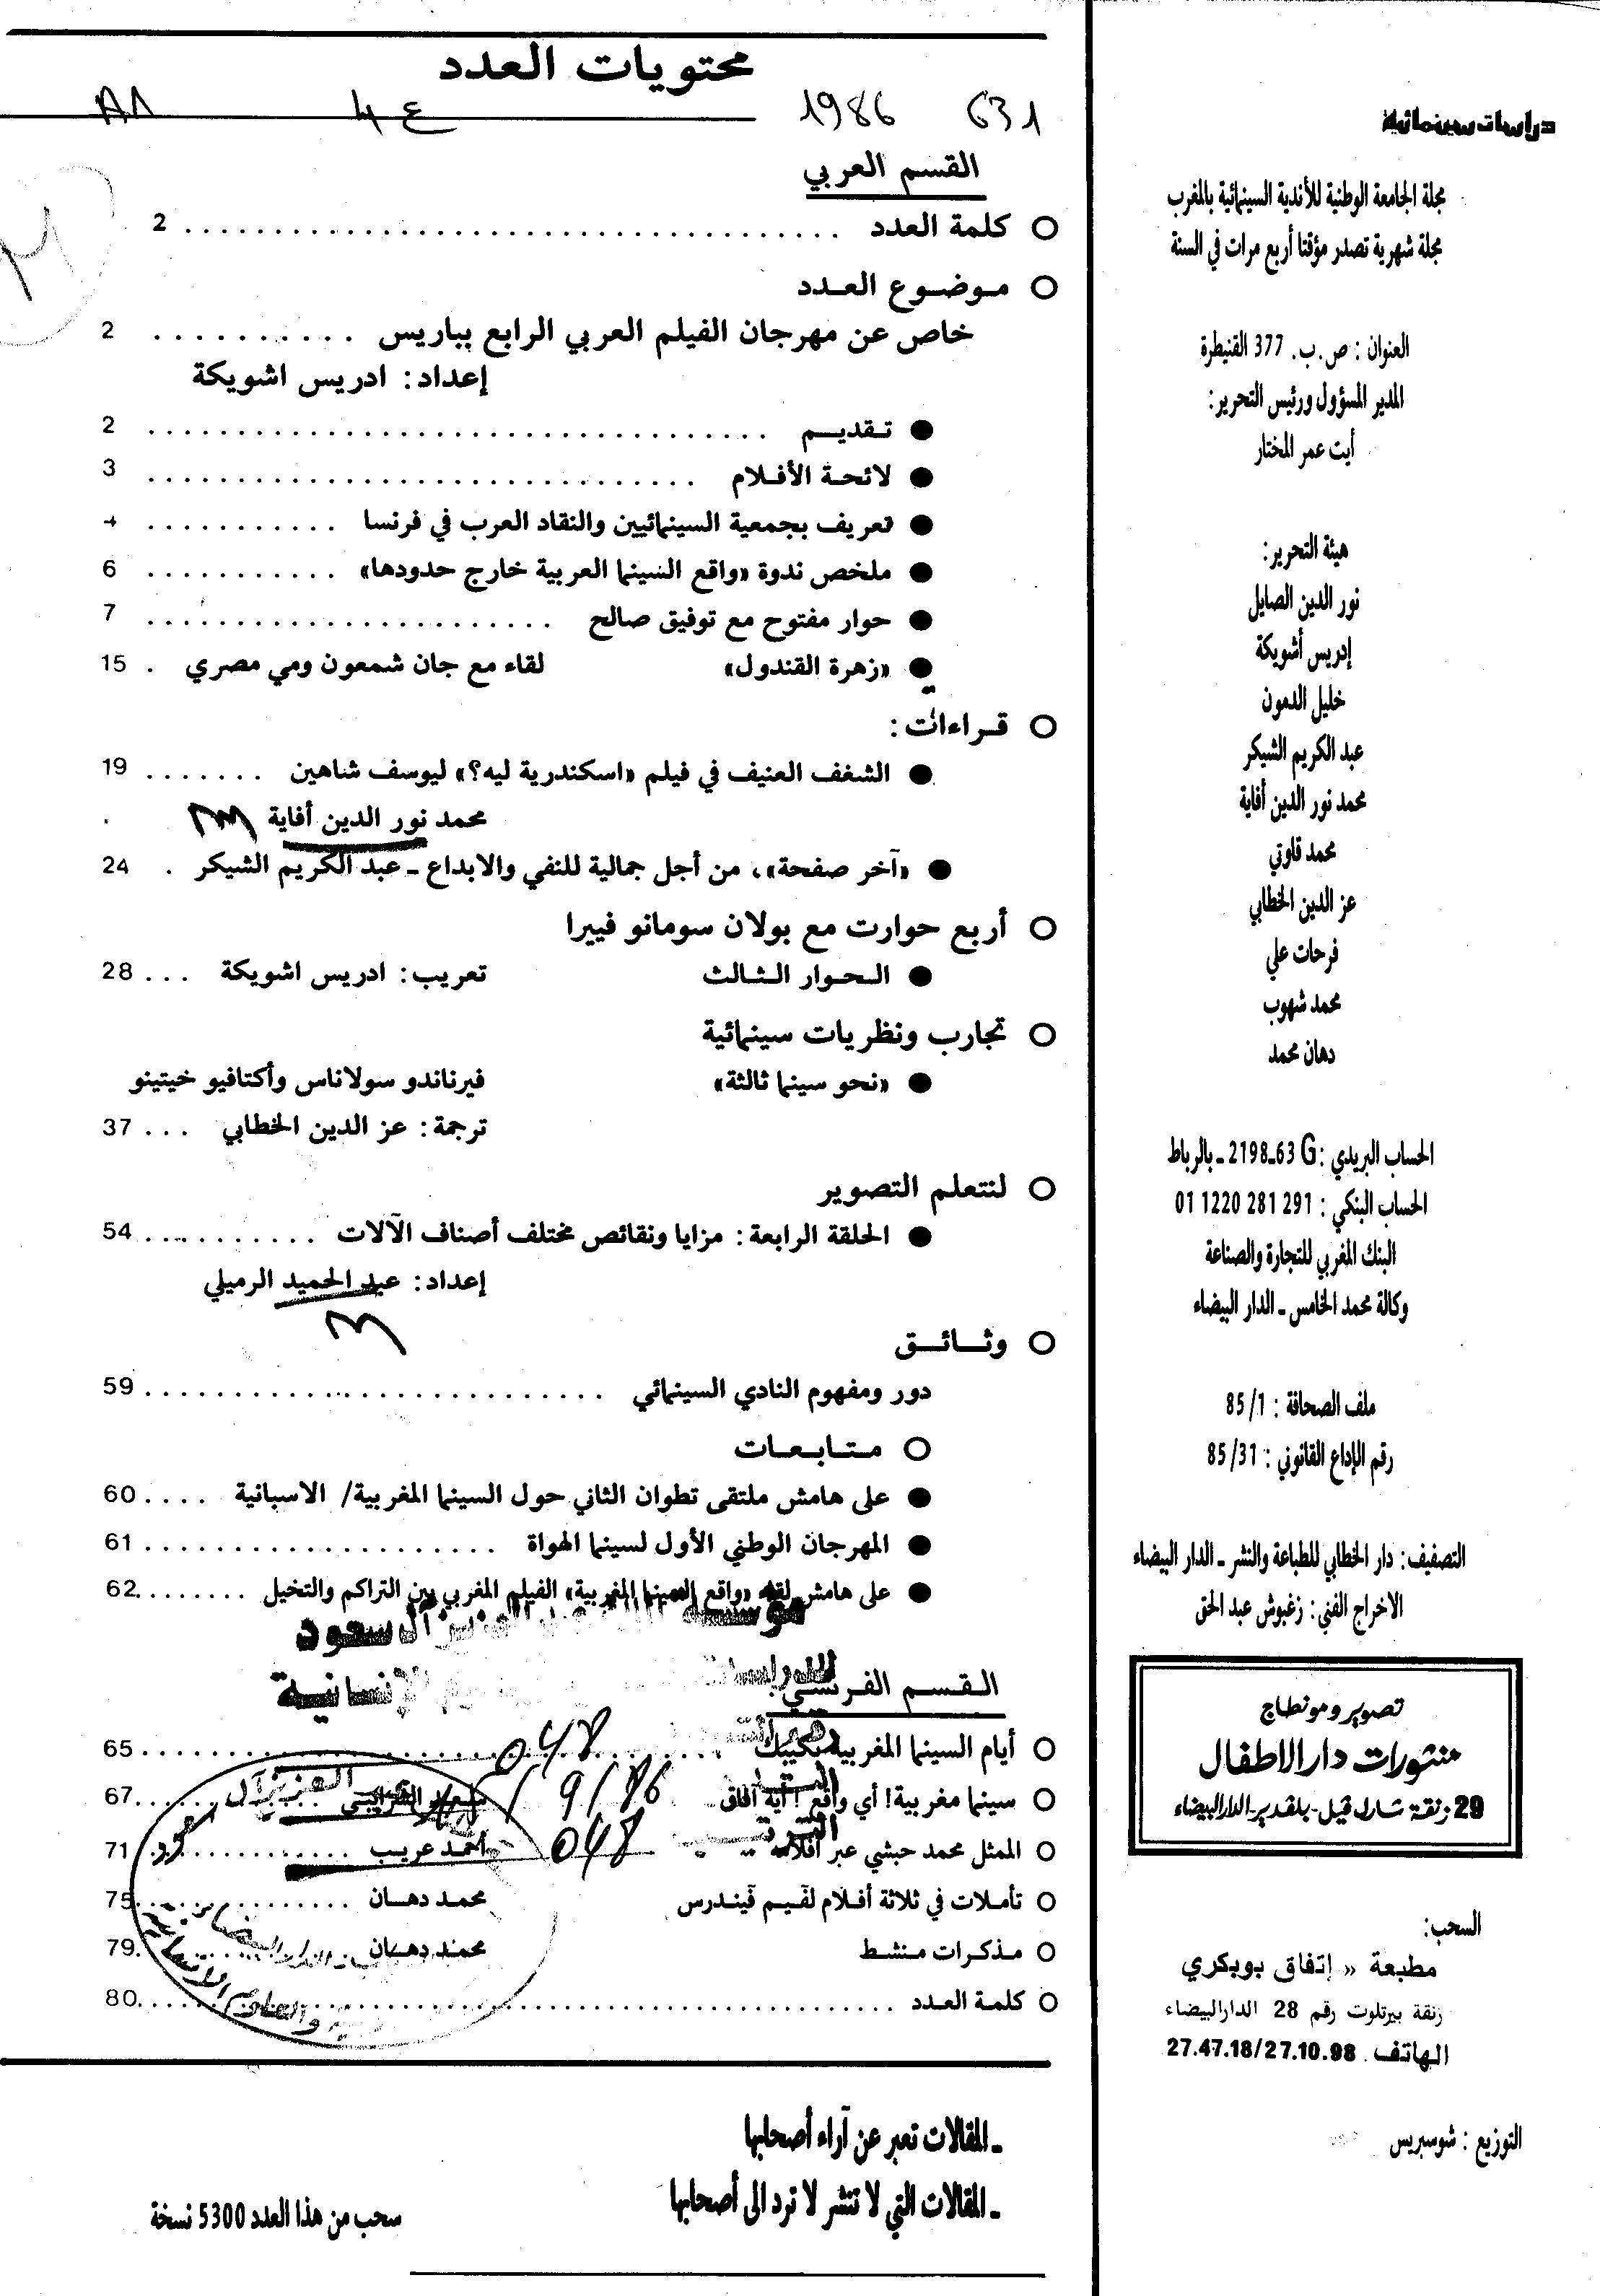 دراسات سينمائية
مجلة الجامعة الوطنية للأندية السينمائية بالمغرب
مجلة شهرية تصدر مؤقتا أربع مرات في السنة
العنوان : ص.ب. 377 القنيطرة
المدير المسؤول ورئيس التحرير:
أيت عمر المختار
هيئة التحرير:
نور الدين الصايل
إدريس أشويكة
خليل الدمون
عبد الكريم الشيكر
محمد نور الدين أفاية
محمد قلوتي
عز الدين الخطابي
فرحات علي
محمد شهوب
دهان محمد
الحساب البريدي :G 63ـ2198 ـ بالرباط
الحساب البنكي : 291 281 1220 01
البنك المغربي للتجارة والصناعة
وكالة محمد الخامس ـ الدار البيضاء
ملف الصحافة : 1/ 85
رقم الإداع القانوني : 31/ 85
التصفيف: دار الخطابي للطباعة والنشر ـ الدار البيضاء
الاخراج الفني: زغبوش عبد الحق
تصوير ومونطاج
منشورات دار الاطفال
29 زنقة شارل قيل - بلقدير - الدار البيضاء
السحب:
مطبعة « إتفاق بوبكري
زنقة بيرتلوت رقم 28 الدارالبيضاء
الهاتف 27.47.18/27.10.98
التوزيع : شوسبريس
محتويات العدد
631 1986 ع 4
القسم العربي
○ كلمة العدد ........ 2
○ موضوع العدد
خاص عن مهرجان الفيلم العربي الرابع بباريس ........ 2
إعداد: ادريس اشويكة
● تقديم ........ 2
● لائحة الأفلام ........ 3
● تعريف بجمعية السينمائيين والنقاد العرب في فرنسا ........ 4
● ملخص ندوة «واقع السينما العربية خارج حدودها» ........ 6
● حوار مفتوح مع توفيق صالح ........ 7
● «زهرة القندول» لقاء مع جان شمعون ومي مصري . 15
○ قراءات :
● الشغف العنيف في فيلم «اسكندرية ليه؟» ليوسف شاهين ....... 19
محمد نور الدين أفاية
● «آخر صفحة»، من أجل جمالية للنفي والابداع ـ عبد الكريم الشيكر . 24
○ أربع حوارت مع بولان سومانو فييرا
● الحوار الثالث تعريب: ادريس اشويكة ... 28
○ تجارب ونظريات سينمائية
● «نحو سينما ثالثة» فيرناندو سولاناس وأكتافيو خيتينو
ترجمة: عز الدين الخطابي ... 37
○ لنتعلم التصوير
● الحلقة الرابعة: مزايا ونقائص مختلف أصناف الآلات ........ 54
إعداد: عبد الحميد الرميلي
○ وثائق
دور ومفهوم النادي السينمائي ........ 59
○ متابعات
● على هامش ملتقى تطوان الثاني حول السينما المغربية/ الاسبانية .... 60
● المهرجان الوطني الأول لسينما الهواة ........ 61
● على هامش لقاء «واقع السينما المغربية» الفيلم المغربي بين التراكم والتخيل ........ 62
آل سعود
الإنسانية
القسم الفرنسي:
○ أيام السينما المغربية بكيبك ........ 65
○ سينما مغربية! أي واقع! أية آفاق ........ 67
○ الممثل محمد حبشي عبر أفلامه أحمد عريب ........ 71
○ تأملات في ثلاثة أفلام لفيم فيندرس محمد دهان ........ 75
○ مذكرات منشط محمد دهان ........ 79
○ كلمة العدد ........ 80
ـ المقالات تعبر عن آراء أصحابها
ـ المقالات التي لا تنشر لا ترد الى أصحابها
سحب من هذا العدد 5300 نسخة